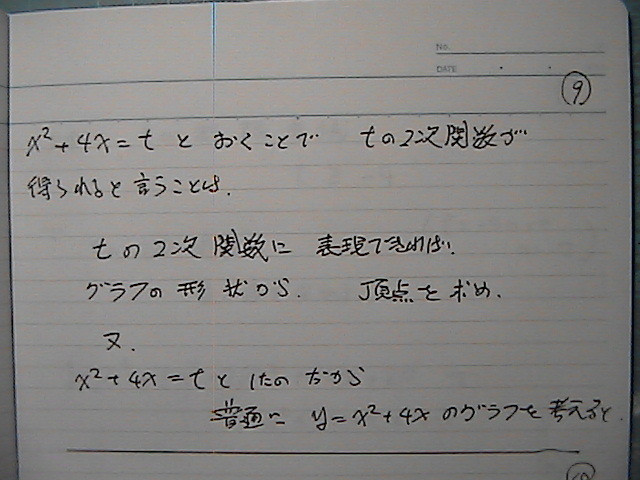 No.
DATE ・ ・
⑨
x²+4x=t と おくことで tの2次関数が
得られると言うことは.
tの2次関数に 表現できれば.
グラフの形状から. 頂点を求め.
又.
x²+4x=t と したのだから
普通に y=x²+4x のグラフを考えると.